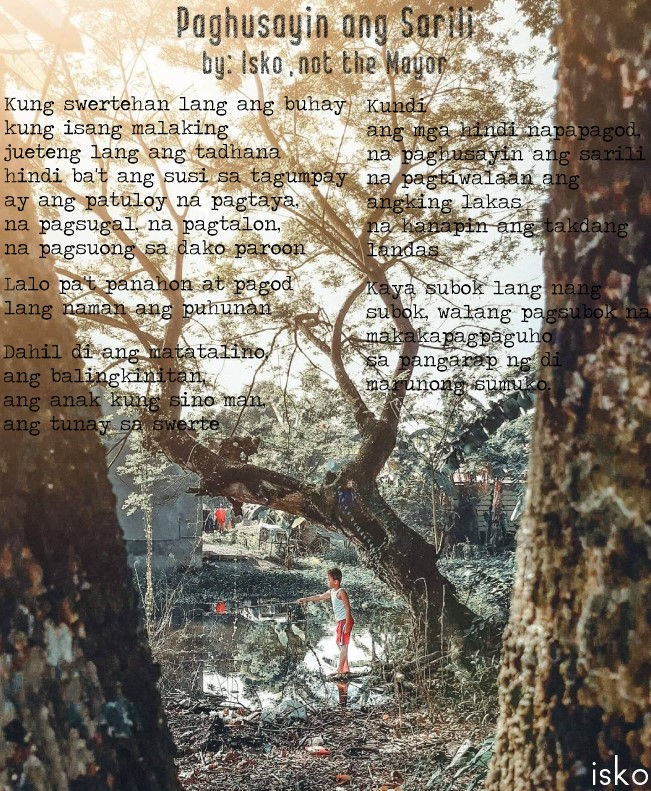 Paghusayin ang Sarili
by: Isko ,not the Mayor
Kung swertehan lang ang buhay
kung isang malaking
jueteng lang ang tadhana
hindi ba't ang susi sa tagumpay
ay ang patuloy na pagtaya,
na pagsugal, na pagtalon,
na pagsuong sa dako paroon
Lalo pa't panahon at pagod
lang naman ang puhunan
Dahil di ang matatalino,
ang balingkinitan,
ang anak kung sino man,
ang tunay sa swerte
Kundi
ang mga hindi napapagod,
na paghusayin ang sarili
na pagtiwalaan ang
angking lakas
na hanapin ang takdang
landas
Kaya subok lang nang
subok, walang pagsubok na
makakapagpaguho
sa pangarap ng di
marunong sumuko.
isko